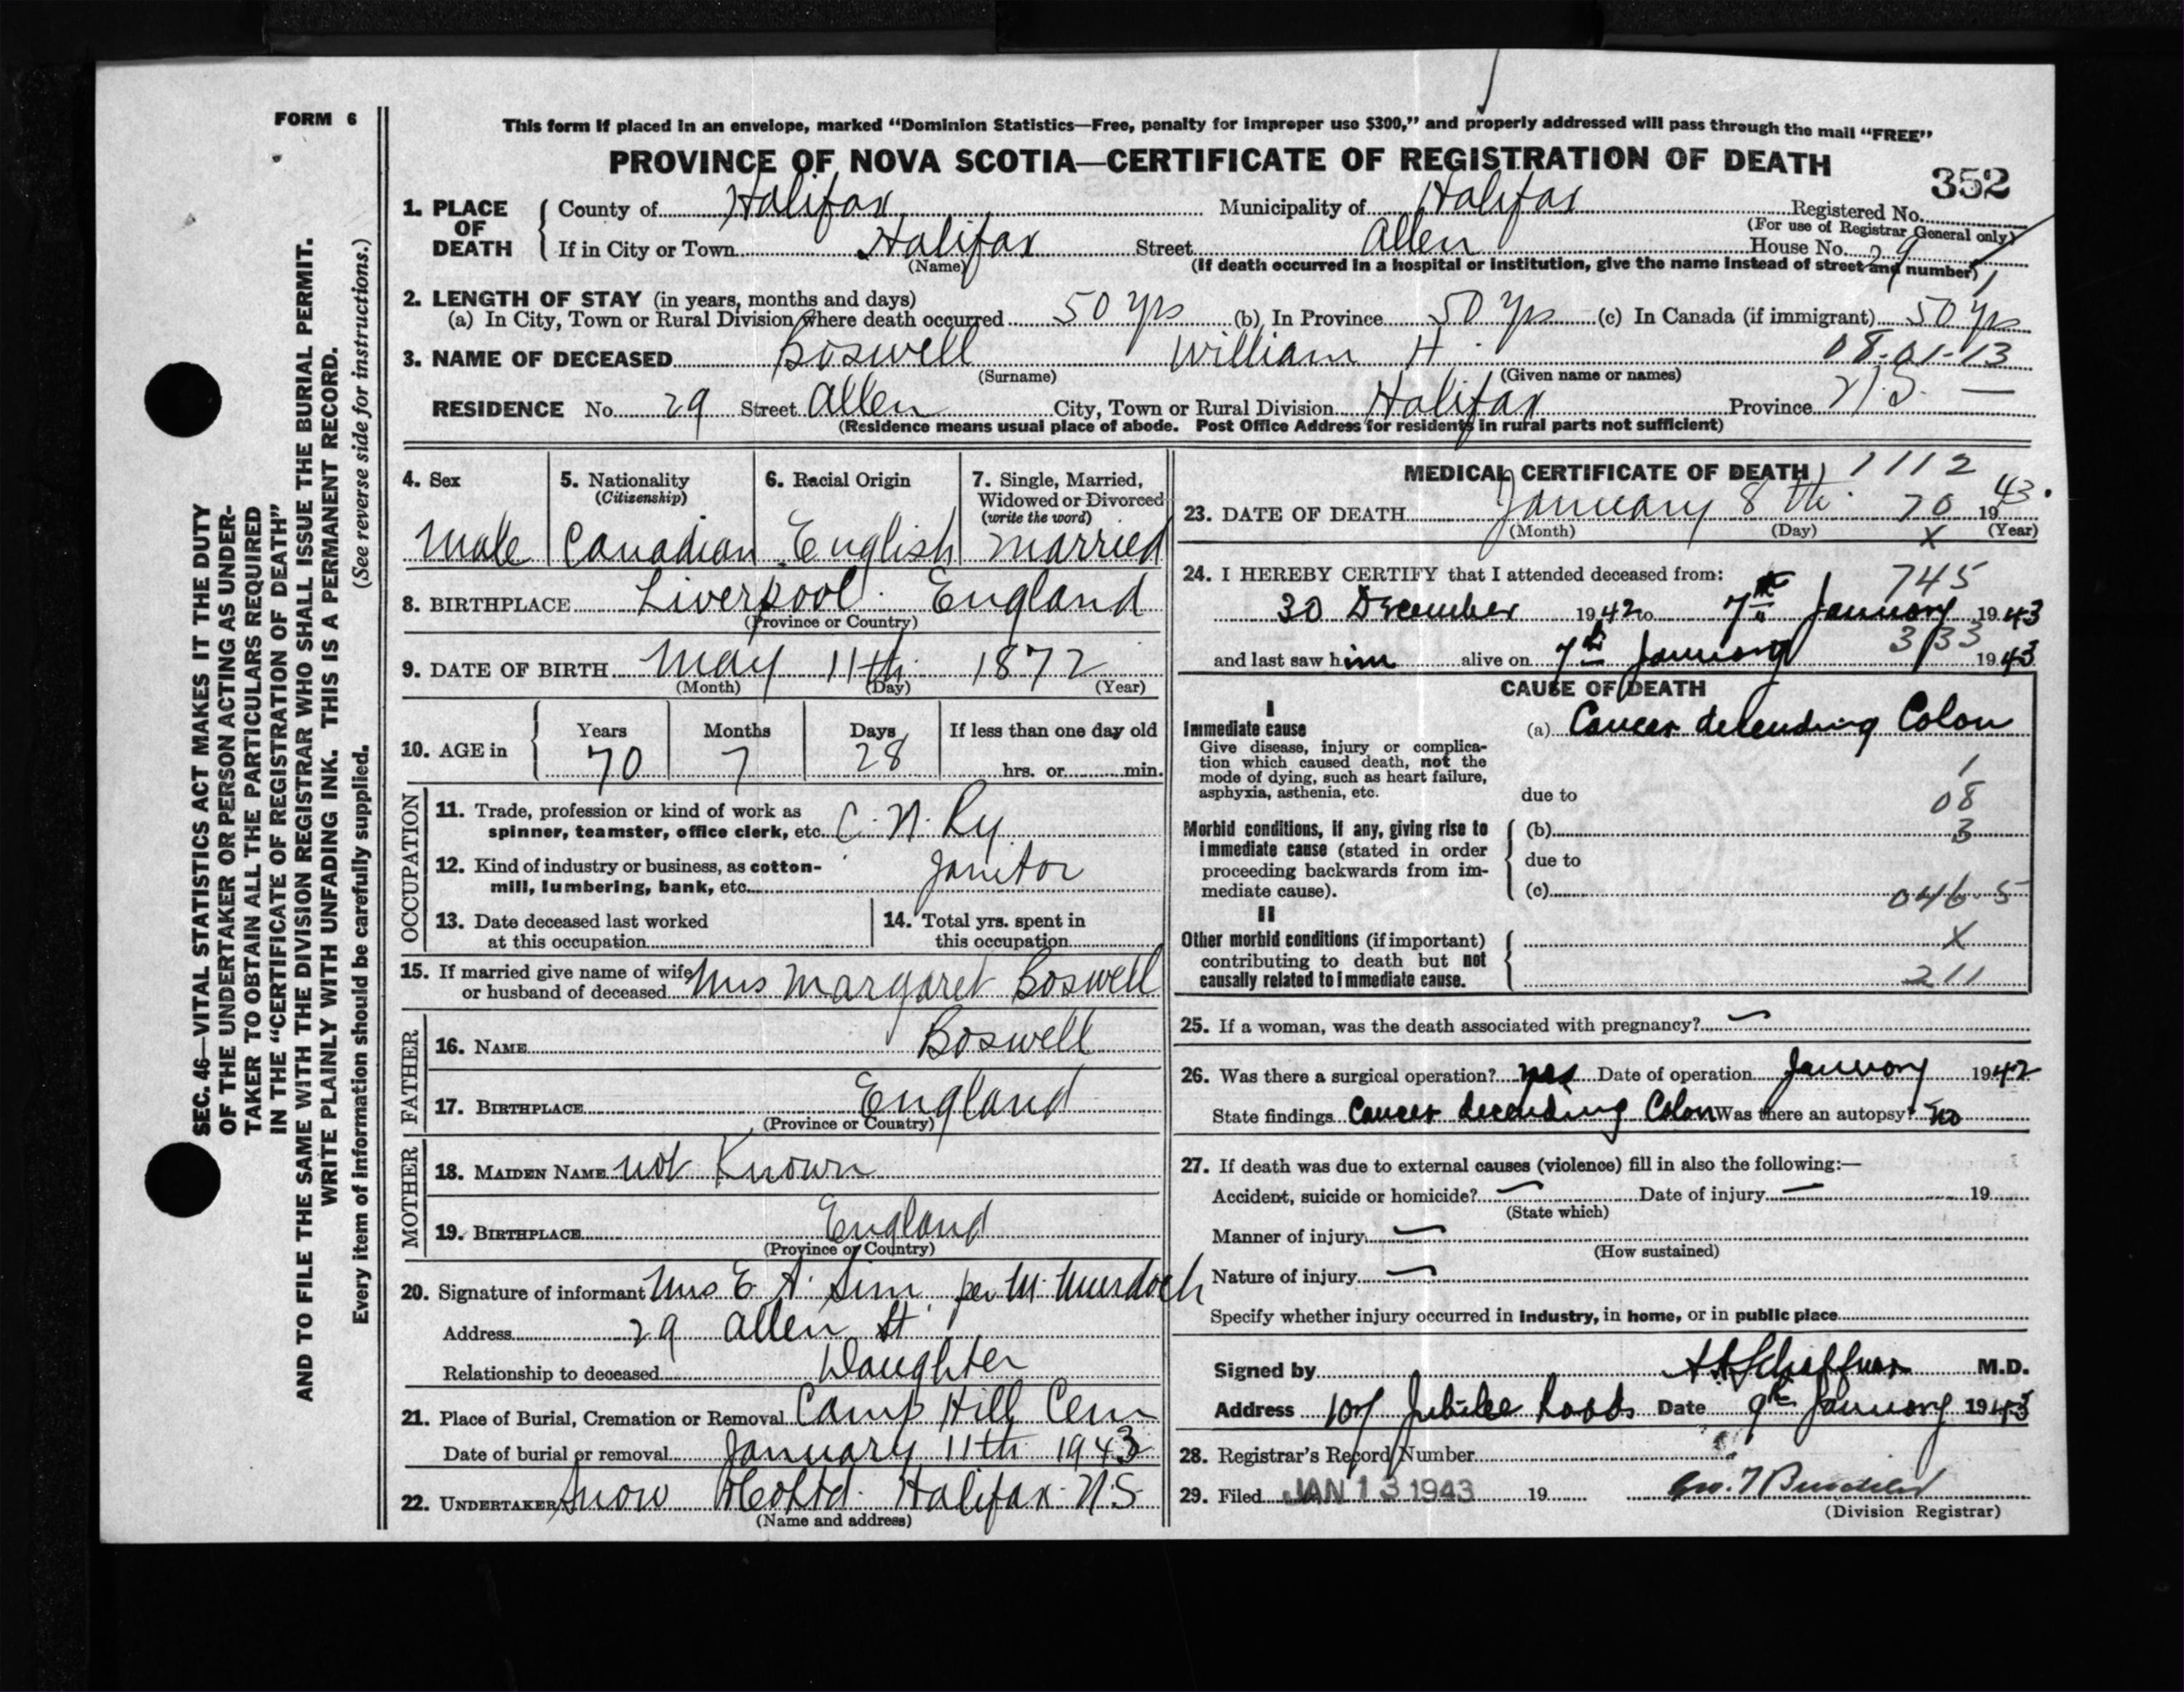 FORM 6
SEC. 46—VITAL STATISTICS ACT MAKES IT THE DUTY
OF THE UNDERTAKER OR PERSON ACTING AS UNDER-
TAKER TO OBTAIN ALL THE PARTICULARS REQUIRED
IN THE "CERTIFICATE OF REGISTRATION OF DEATH"
AND TO FILE THE SAME WITH THE DIVISION REGISTRAR WHO SHALL ISSUE THE BURIAL PERMIT.
WRITE PLAINLY WITH UNFADING INK. THIS IS A PERMANENT RECORD.
Every item of information should be carefully supplied. (See reverse side for instructions.)
This form if placed in an envelope, marked "Dominion Statistics—Free, penalty for improper use $300," and properly addressed will pass through the mail "FREE"
PROVINCE OF NOVA SCOTIA—CERTIFICATE OF REGISTRATION OF DEATH
352
1. PLACE OF DEATH
County of Halifax Municipality of Halifax Registered No.
(For use of Registrar General only)
If in City or Town Halifax Street Allen House No. 29
(Name) (If death occurred in a hospital or institution, give the name instead of street and number)
2. LENGTH OF STAY (in years, months and days)
(a) In City, Town or Rural Division where death occurred 50 yrs (b) In Province 50 yrs (c) In Canada (if immigrant) 50 yrs
3. NAME OF DECEASED Boswell William H. 08-01-13
(Surname) (Given name or names)
RESIDENCE No. 29 Street Allen City, Town or Rural Division Halifax Province N.S. —
(Residence means usual place of abode. Post Office Address for residents in rural parts not sufficient)
4. Sex
Male
5. Nationality
(Citizenship)
Canadian
6. Racial Origin
English
7. Single, Married,
Widowed or Divorced
(write the word)
Married
8. BIRTHPLACE Liverpool England
(Province or Country)
9. DATE OF BIRTH May 11th 1872
(Month) (Day) (Year)
10. AGE in
Years Months Days If less than one day old
70 7 28 hrs. or min.
OCCUPATION
11. Trade, profession or kind of work as
spinner, teamster, office clerk, etc. C. N. Ry
12. Kind of industry or business, as cotton-
mill, lumbering, bank, etc. Janitor
13. Date deceased last worked
at this occupation
14. Total yrs. spent in
this occupation
15. If married give name of wife
or husband of deceased Mrs Margaret Boswell
FATHER
16. NAME Boswell
17. BIRTHPLACE England
(Province or Country)
MOTHER
18. MAIDEN NAME not Known
19. BIRTHPLACE England
(Province or Country)
20. Signature of informant Mrs E A. Sim per M. Murdoch
Address 29 Allen St
Relationship to deceased Daughter
21. Place of Burial, Cremation or Removal Camp Hill Cem
Date of burial or removal January 11th 1943
22. UNDERTAKER Snow & Co Ltd. Halifax N.S
(Name and address)
MEDICAL CERTIFICATE OF DEATH 1112
23. DATE OF DEATH January 8th 70 1943.
(Month) (Day) x (Year)
24. I HEREBY CERTIFY that I attended deceased from: 745
30 December 1942 to 7th January 1943
333
and last saw him alive on 7th January 1943
CAUSE OF DEATH
I
Immediate cause
Give disease, injury or complica-
tion which caused death, not the
mode of dying, such as heart failure,
asphyxia, asthenia, etc.
(a) Cancer decending Colon
1
due to
08
Morbid conditions, if any, giving rise to
immediate cause (stated in order
proceeding backwards from im-
mediate cause).
(b) 3
due to
(c) 046-5
II
Other morbid conditions (if important)
contributing to death but not
causally related to immediate cause.
X
211
25. If a woman, was the death associated with pregnancy? —
26. Was there a surgical operation? yes Date of operation January 1942
State findings Cancer decending Colon Was there an autopsy? no
27. If death was due to external causes (violence) fill in also the following:—
Accident, suicide or homicide? — Date of injury — 19
(State which)
Manner of injury —
(How sustained)
Nature of injury —
Specify whether injury occurred in industry, in home, or in public place
Signed by M.D.
Address 107 Jubilee Road Date 9th January 1943
28. Registrar's Record Number
29. Filed JAN 13 1943 19
(Division Registrar)